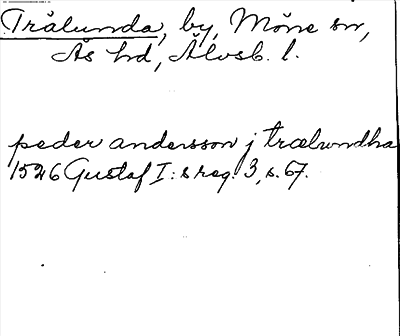 Trålunda, by, Möne sn,
Ås hd, Älvsb. l.
peder andersson j trælwndha
1526 Gustaf I:s reg. 3, s. 67.